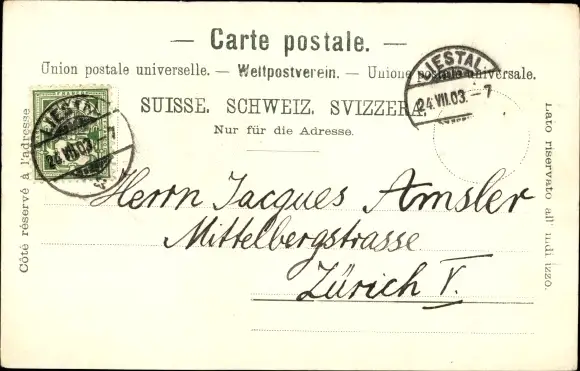 — Carte postale. —
Union postale universelle. — Weltpostverein. — Unione postale universale.
SUISSE. SCHWEIZ. SVIZZERA.
Nur für die Adresse.
LIESTAL
24.VII.03.-7
LIESTAL
24.VII.03.-7
Côté réservé à l'adresse
Lato riservato all' indirizzo.
Herrn Jacques Amsler
Mittelbergstrasse
Zürich V.